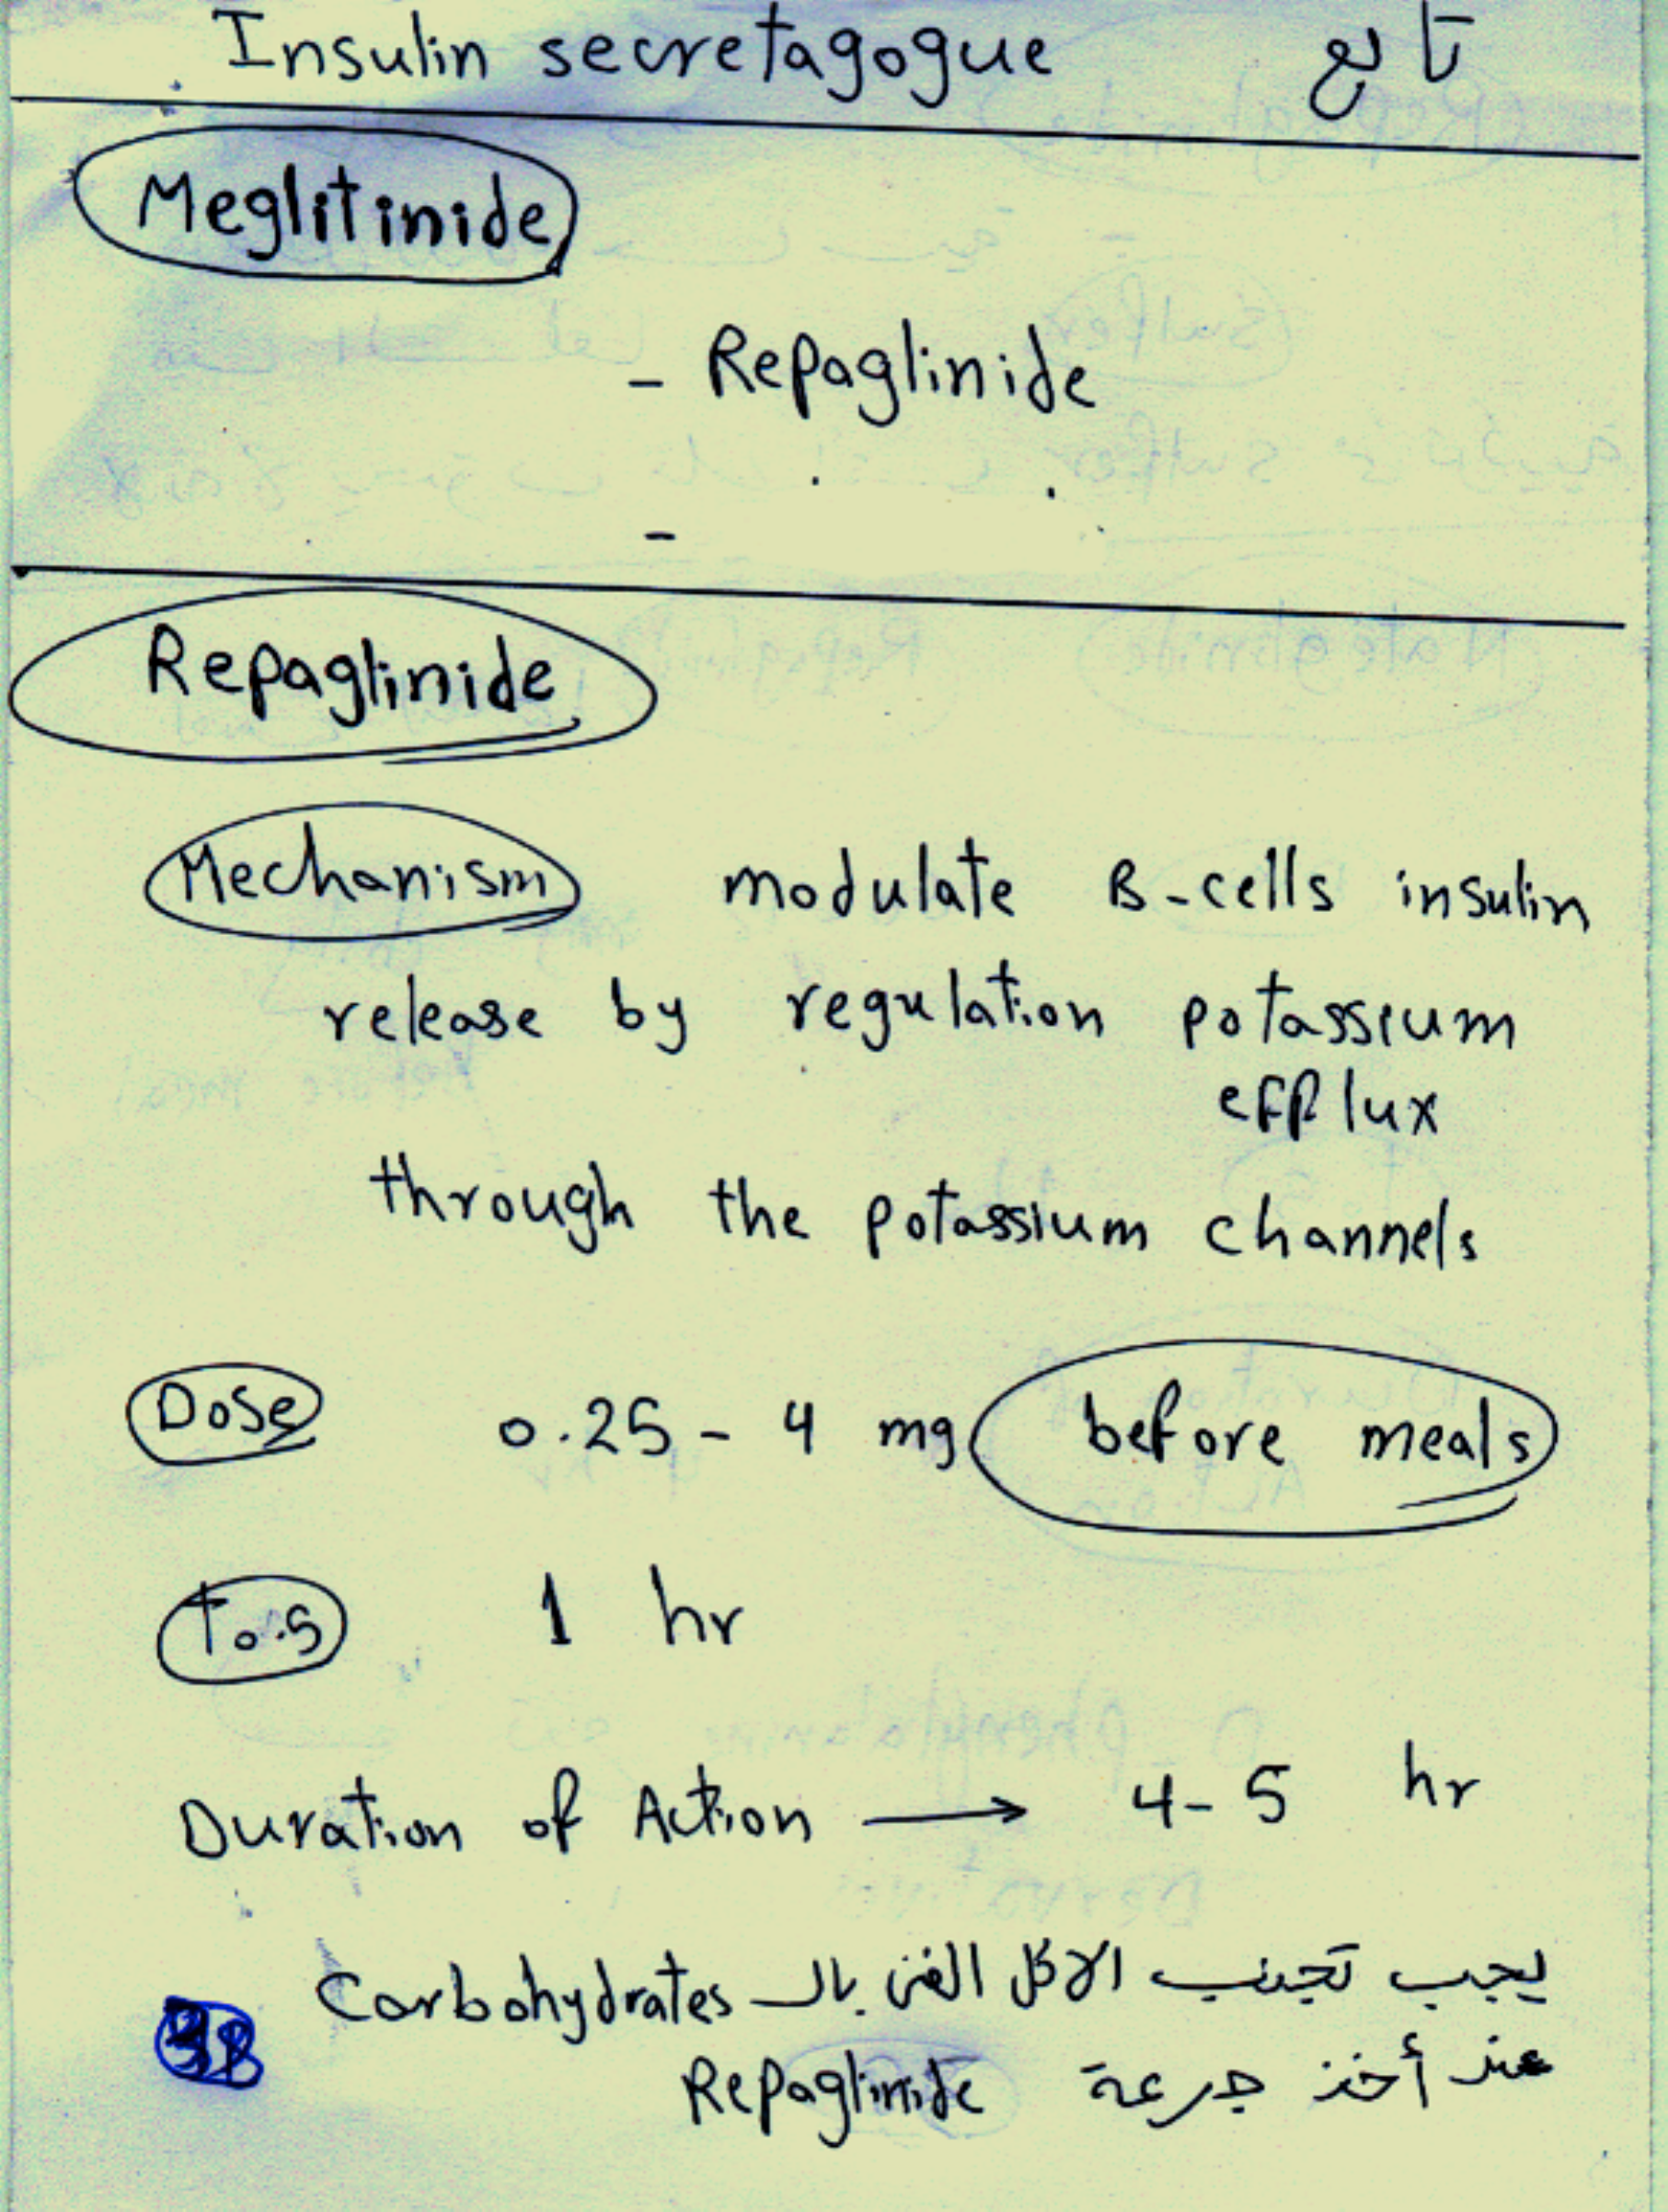 Insulin secretagogue تابع
Meglitinide
- Repaglinide
-
Repaglinide
Mechanism modulate B-cells insulin
release by regulation potassium
efflux
through the potassium channels
Dose 0.25 - 4 mg before meals
T0.5 1 hr
Duration of Action → 4-5 hr
يجب تجنب الاكل الغنى بالـ Carbohydrates
عند أخذ جرعة Repaglinide